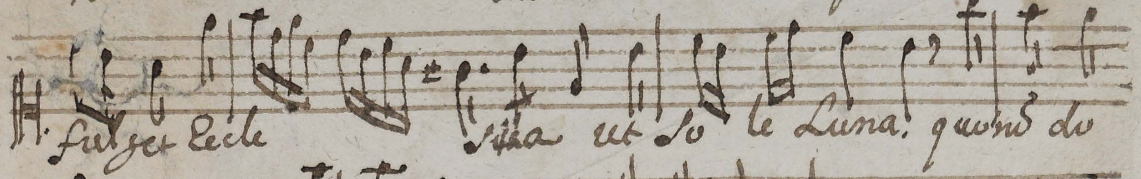 fulget Eccle sita ut So le Luna. quonõ do